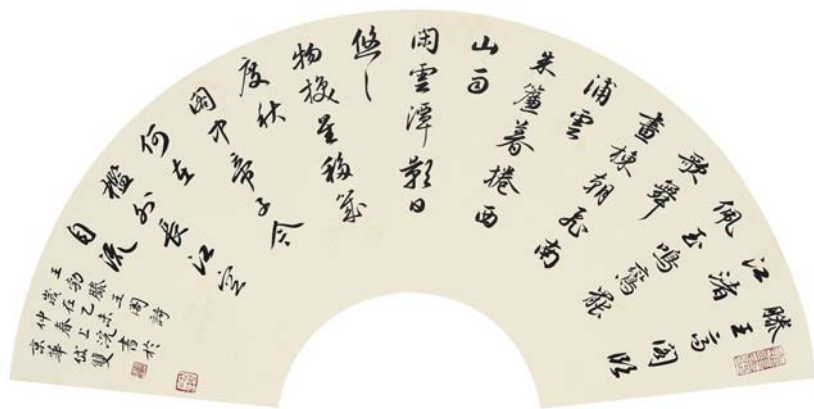 滕王高閣臨
江渚
佩玉鳴鸞罷
歌舞
畫棟朝飛南
浦雲
朱簾暮捲西
山雨
閑雲潭影日
悠〻
物換星移幾
度秋
閣中帝子今
何在
檻外長江空
自流
王勃滕王閣詩
歲在乙未
仲春上浣書於
京華岱雙